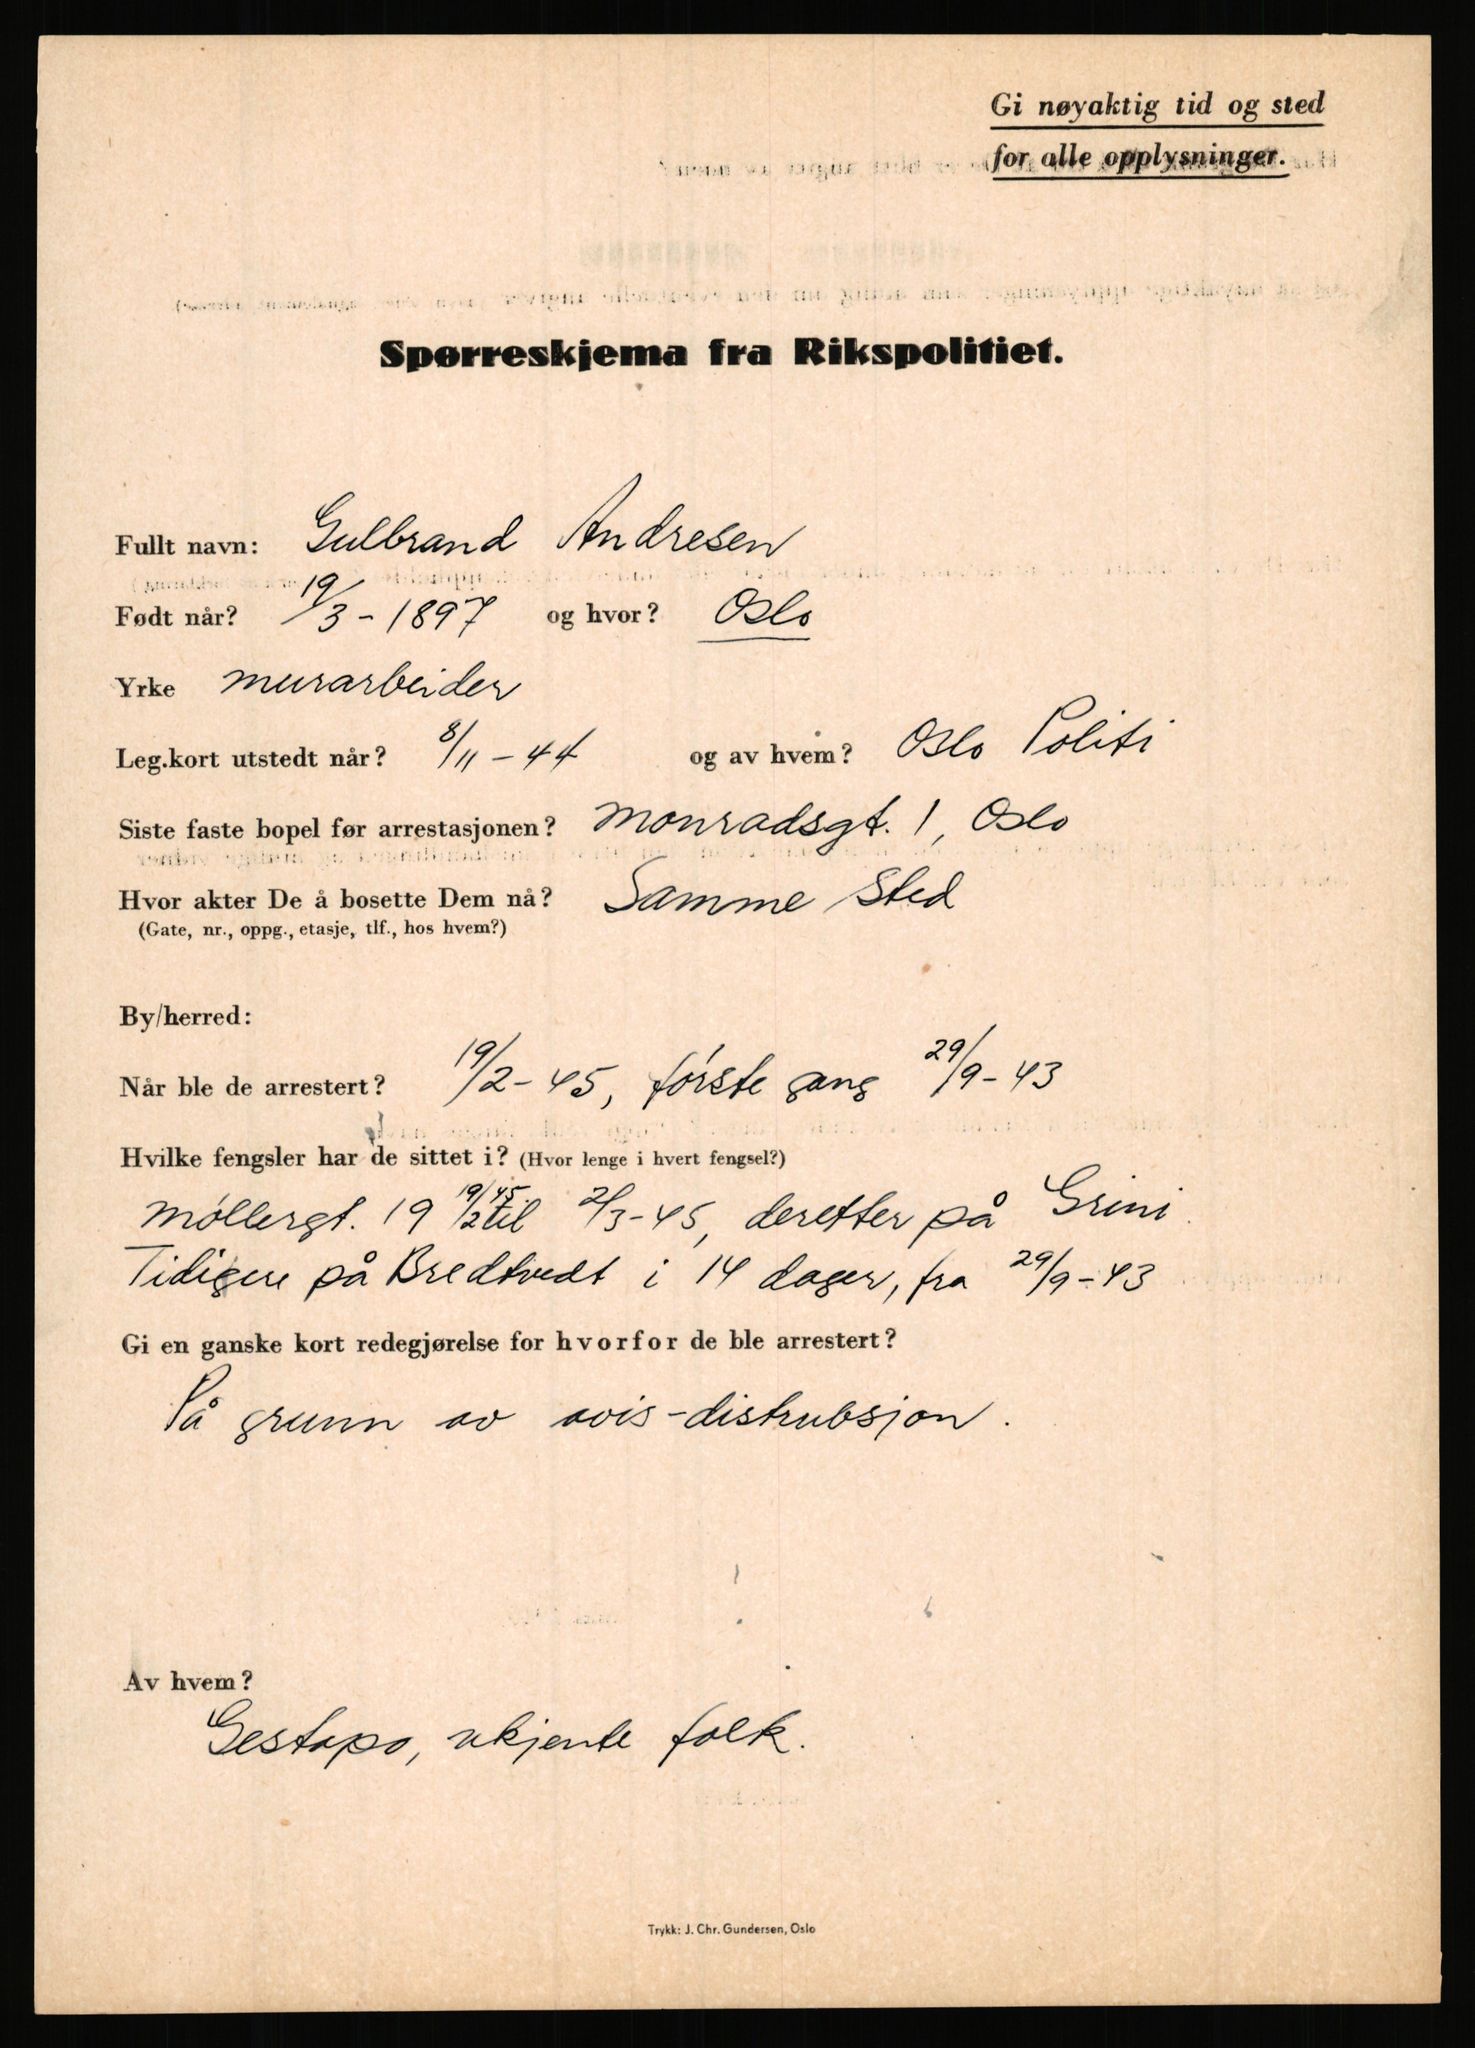 Gi nøyaktig tid og sted
for alle opplysninger.
Spørreskjema fra Rikspolitiet.
Fullt navn: Gulbrand Andresen
Født når? 19/3 - 1897 og hvor? Oslo
Yrke murarbeider
Leg.kort utstedt når? 8/11 - 44 og av hvem? Oslo Politi
Siste faste bopel før arrestasjonen? Monradsgt. 1, Oslo
Hvor akter De å bosette Dem nå? Samme sted
(Gate, nr., oppg., etasje, tlf., hos hvem?)
By/herred:
Når ble de arrestert? 19/2 - 45, første gang 29/9 - 43
Hvilke fengsler har de sittet i? (Hvor lenge i hvert fengsel?)
Møllergt. 19 19/2 45 til 2/3 - 45, deretter på Grini.
Tidigere på Bredtvedt i 14 dager, fra 29/9 - 43
Gi en ganske kort redegjørelse for hvorfor de ble arrestert?
På grunn av avis-distrubsjon.
Av hvem?
Gestapo, ukjente folk.
Trykk: J. Chr. Gundersen, Oslo